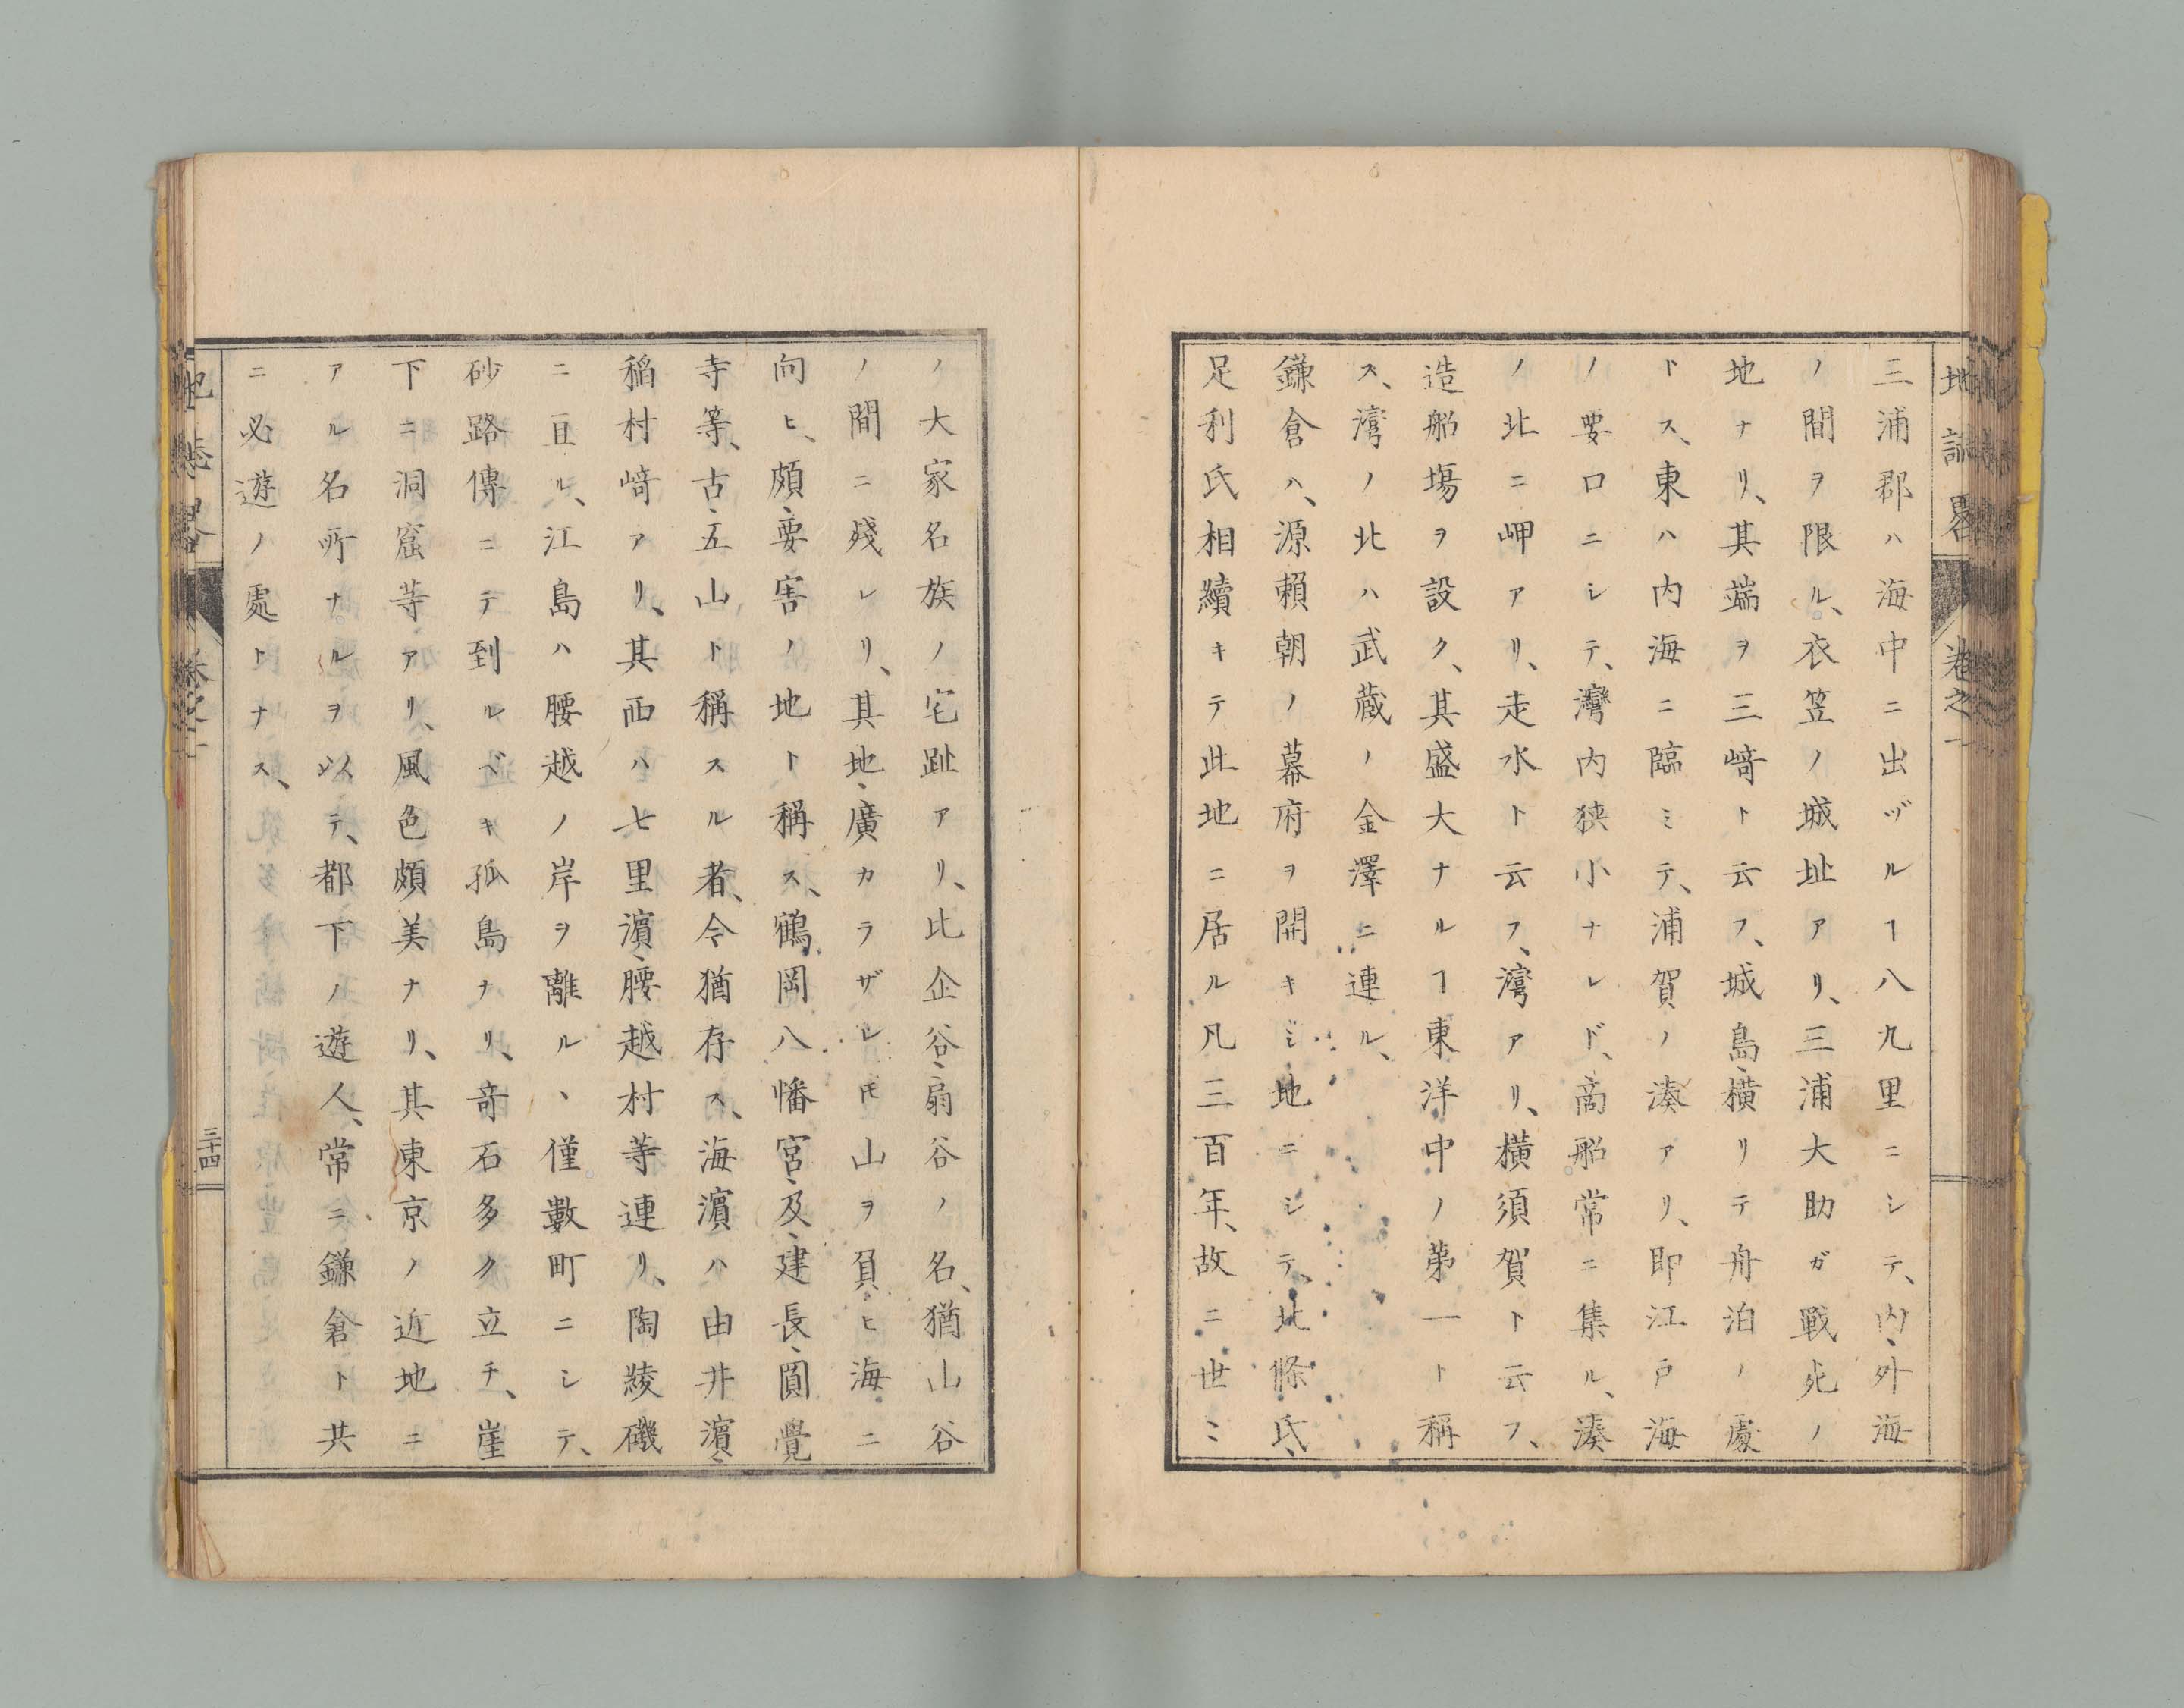 地誌畧 卷之一
三浦郡ハ海中ニ出ヅルヿ八九里ニシテ、内、外海
ノ間ヲ限ル、衣笠ノ城址アリ、三浦大助ガ戰死ノ
地ナリ、其端ヲ三﨑ト云フ、城島、橫リテ舟泊ノ處
トス、東ハ内海ニ臨ミテ、浦賀ノ湊アリ、即江戸海
ノ要口ニシテ、灣内狹小ナレド、商船常ニ集ル、湊
ノ北ニ岬アリ、走水ト云フ、灣アリ、橫須賀ト云フ、
造船場ヲ設ク、其盛大ナルヿ東洋中ノ第一ト稱
ス、灣ノ北ハ武藏ノ金澤ニ連ル、
鎌倉ハ、源賴朝ノ幕府ヲ開キシ地ニシテ、北條氏、
足利氏相續キテ此地ニ居ル凡三百年、故ニ世〻
ノ大家名族ノ宅趾アリ、比企谷、扇谷ノ名、猶山谷
ノ間ニ殘レリ、其地、廣カラザレ𪜈山ヲ負ヒ海ニ
向ヒ、頗、要害ノ地ト稱ス、鶴岡八幡宮、及、建長、圓覺
寺等、古、五山ト稱スル者、今猶存ス、海濵ハ由井濵、
稲村﨑アリ、其西ハ七里濵、腰越村等連リ、陶綾磯
ニ亘ル、江島ハ腰越ノ岸ヲ離ルヽ、僅數町ニシテ、
砂路傳ニテ到ルベキ孤島ナリ、竒石多ク立チ、崖
下ニ洞窟等アリ、風色頗美ナリ、其東京ノ近地ニ
アル名所ナルヲ以テ、都下ノ遊人、常ニ鎌倉ト共
ニ必遊ノ處トナス、
地誌畧 卷之一 三十四